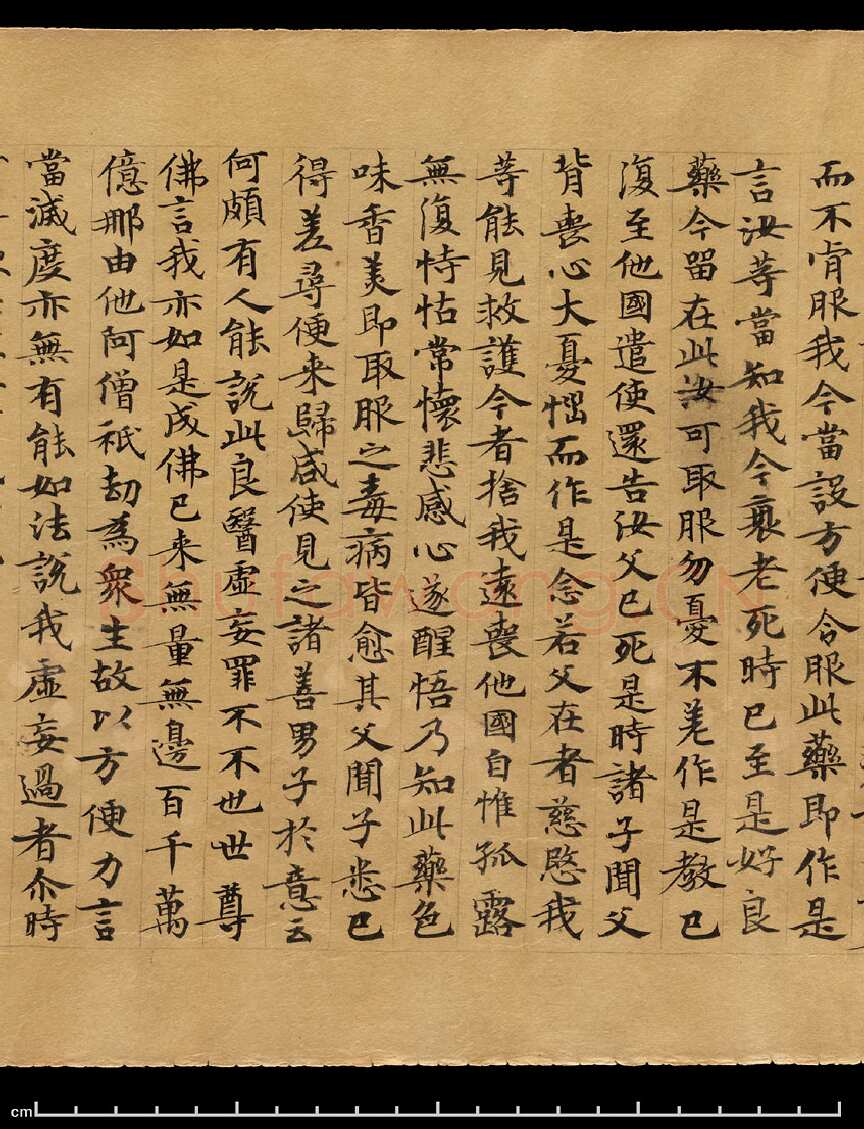 而不肯服我今當設方便令服此藥即作是
言汝等當知我今衰老死時已至是好良
藥今留在此汝可取服勿憂不差作是教已
復至他國遣使還告汝父已死是時諸子聞父
背喪心大憂惱而作是念若父在者慈愍我
等能見救護今者捨我遠喪他國自惟孤露
無復恃怙常懷悲感心遂醒悟乃知此藥色
味香美即取服之毒病皆愈其父聞子悉已
得差尋便来歸咸使見之諸善男子於意云
何頗有人能說此良醫虛妄罪不不也世尊
佛言我亦如是成佛已来無量無邊百千萬
億那由他阿僧祇劫為衆生故以方便力言
當滅度亦無有能如法說我虛妄過者尒時
shufawang.CN
cm